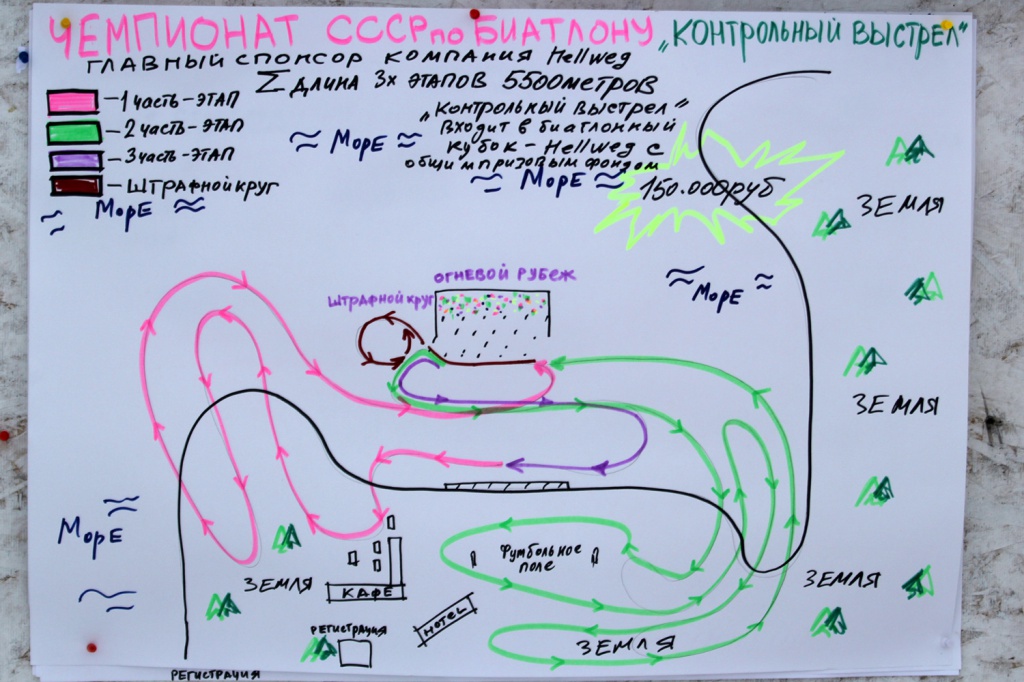 ЧЕМПИОНАТ СССР по БИАТЛОНУ „КОНТРОЛЬНЫЙ ВЫСТРЕЛ"
ГЛАВНЫЙ СПОНСОР КОМПАНИЯ Hellweg
Σ ДЛИНА 3х ЭТАПОВ 5500 МЕТРОВ
- 1 ЧАСТЬ - ЭТАП
- 2 ЧАСТЬ - ЭТАП
- 3 ЧАСТЬ - ЭТАП
- ШТРАФНОЙ КРУГ
„КОНТРОЛЬНЫЙ ВЫСТРЕЛ"
ВХОДИТ В БИАТЛОННЫЙ
КУБОК - Hellweg С
ОБЩИМ ПРИЗОВЫМ ФОНДОМ
150.000 РУБ
МОРЕ
МОРЕ
МОРЕ
ЗЕМЛЯ
МОРЕ
ОГНЕВОЙ РУБЕЖ
ШТРАФНОЙ КРУГ
ЗЕМЛЯ
МОРЕ
ФУТБОЛЬНОЕ
ПОЛЕ
ЗЕМЛЯ
ЗЕМЛЯ
КАФЕ
HOTEL
РЕГИСТРАЦИЯ
ЗЕМЛЯ
РЕГИСТРАЦИЯ